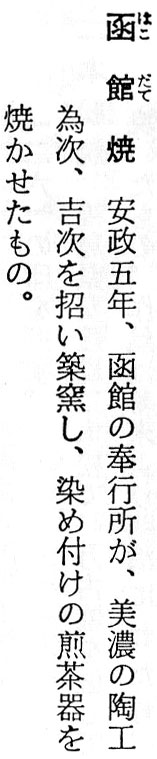 函館焼　安政五年、函館の奉行所が、美濃の陶工
為次、吉次を招い築窯し、染め付けの煎茶器を
焼かせたもの。